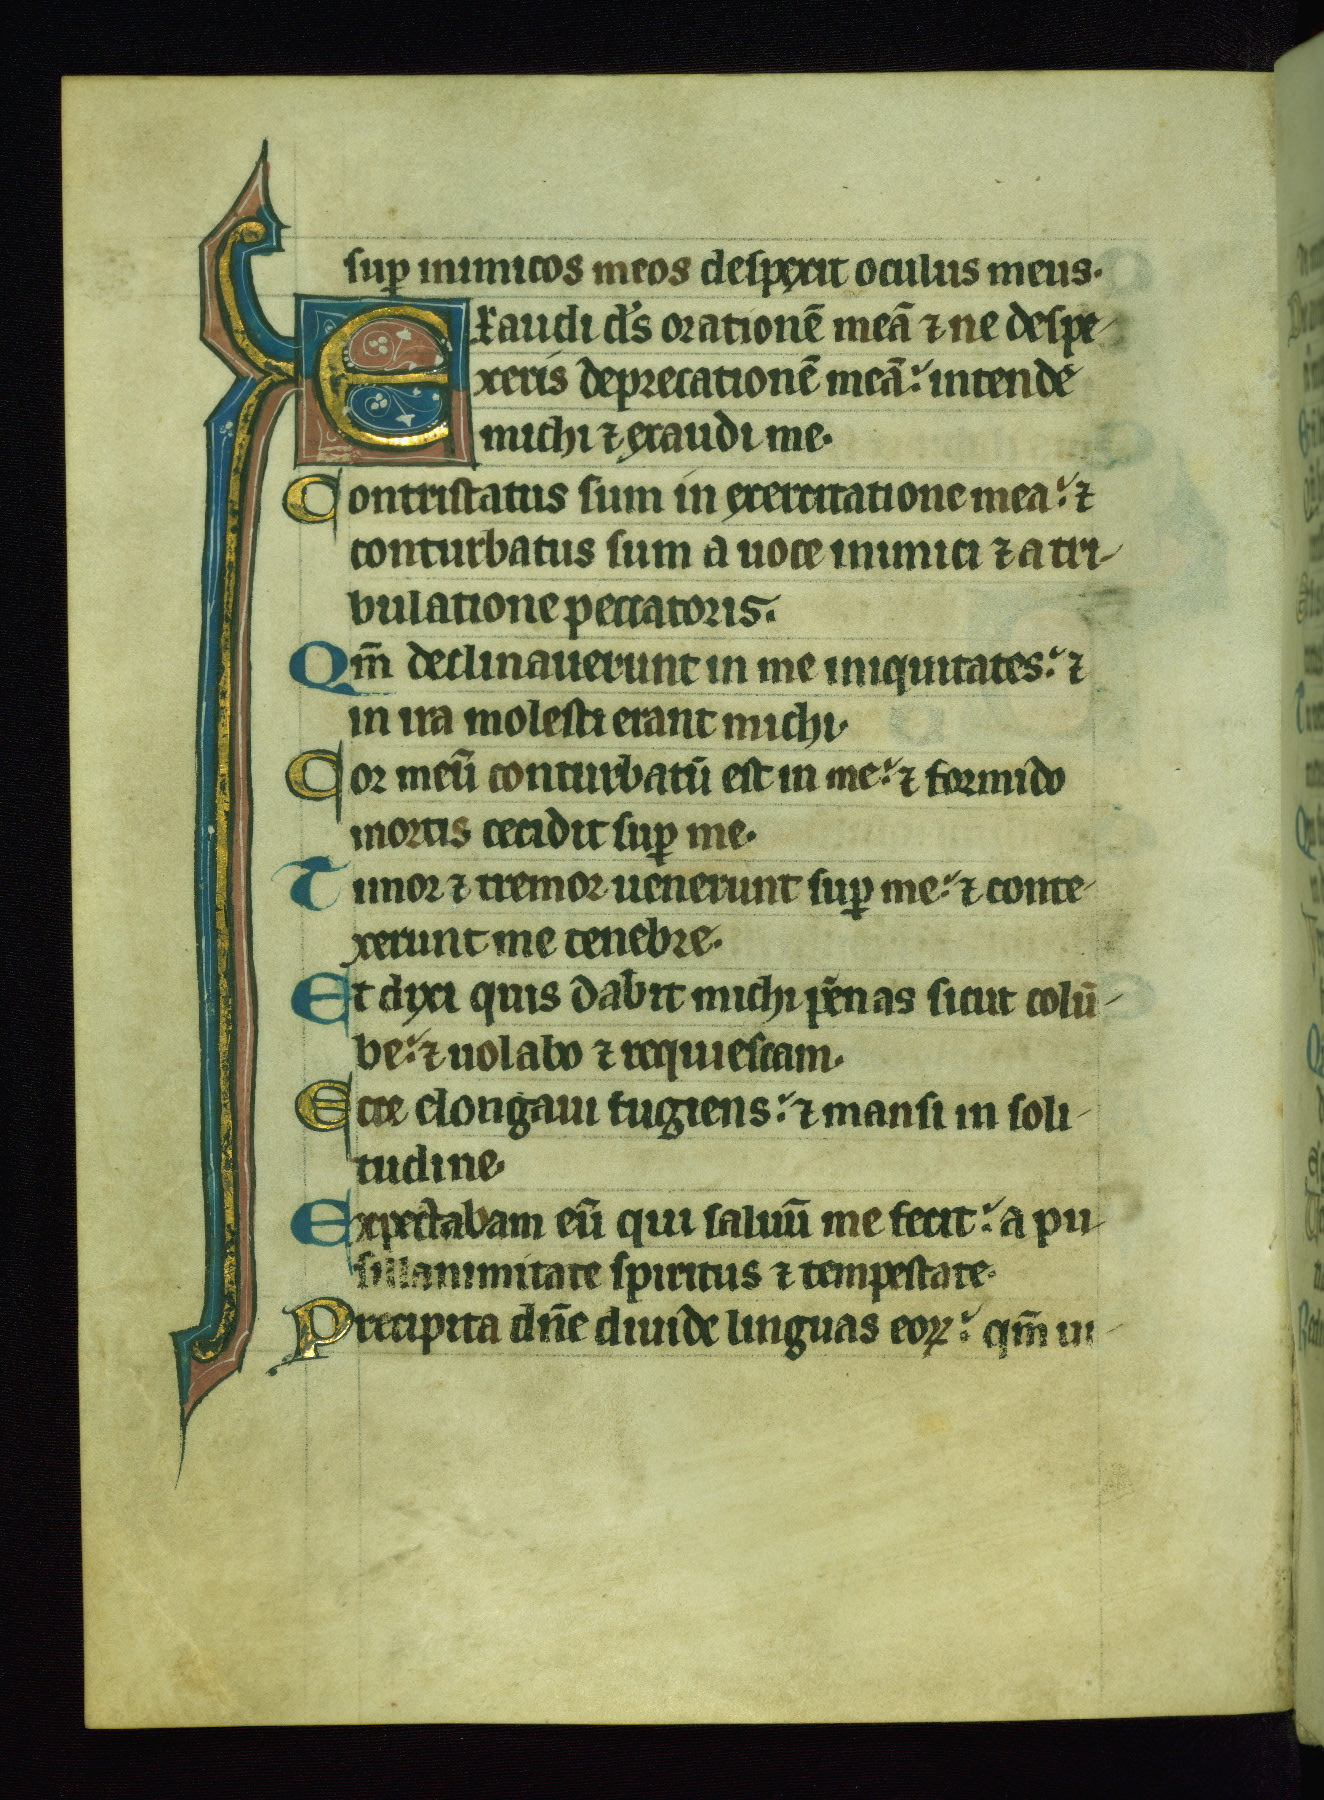 sup̱ inimicos meos despexit oculus meus.
Exaudi ds̄ orationē meā ⁊ ne despe-
xeris deprecationē meā: intende
michi ⁊ exaudi me.
Contristatus sum in exercitatione mea: ⁊
conturbatus sum a uoce inimici ⁊ a tri-
bulatione peccatoris.
Qm̄ declinauerunt in me iniquitates: ⁊
in ira molesti erant michi.
Cor meū conturbatū est in me: ⁊ formido
mortis cecidit sup̱ me.
Timor ⁊ tremor uenerunt sup̱ me: ⁊ conte-
xerunt me tenebre.
Et dixi quis dabit michi pēnas sicut colū-
be: ⁊ uolabo ⁊ requiescam.
Ecce elongaui fugiens: ⁊ mansi in soli-
tudine.
Expectabam eū qui saluū me fecit: a pu-
sillanimitate spiritus ⁊ tempestate.
Precipita dn̄e diuide linguas eoꝝ: qm̄ ui-